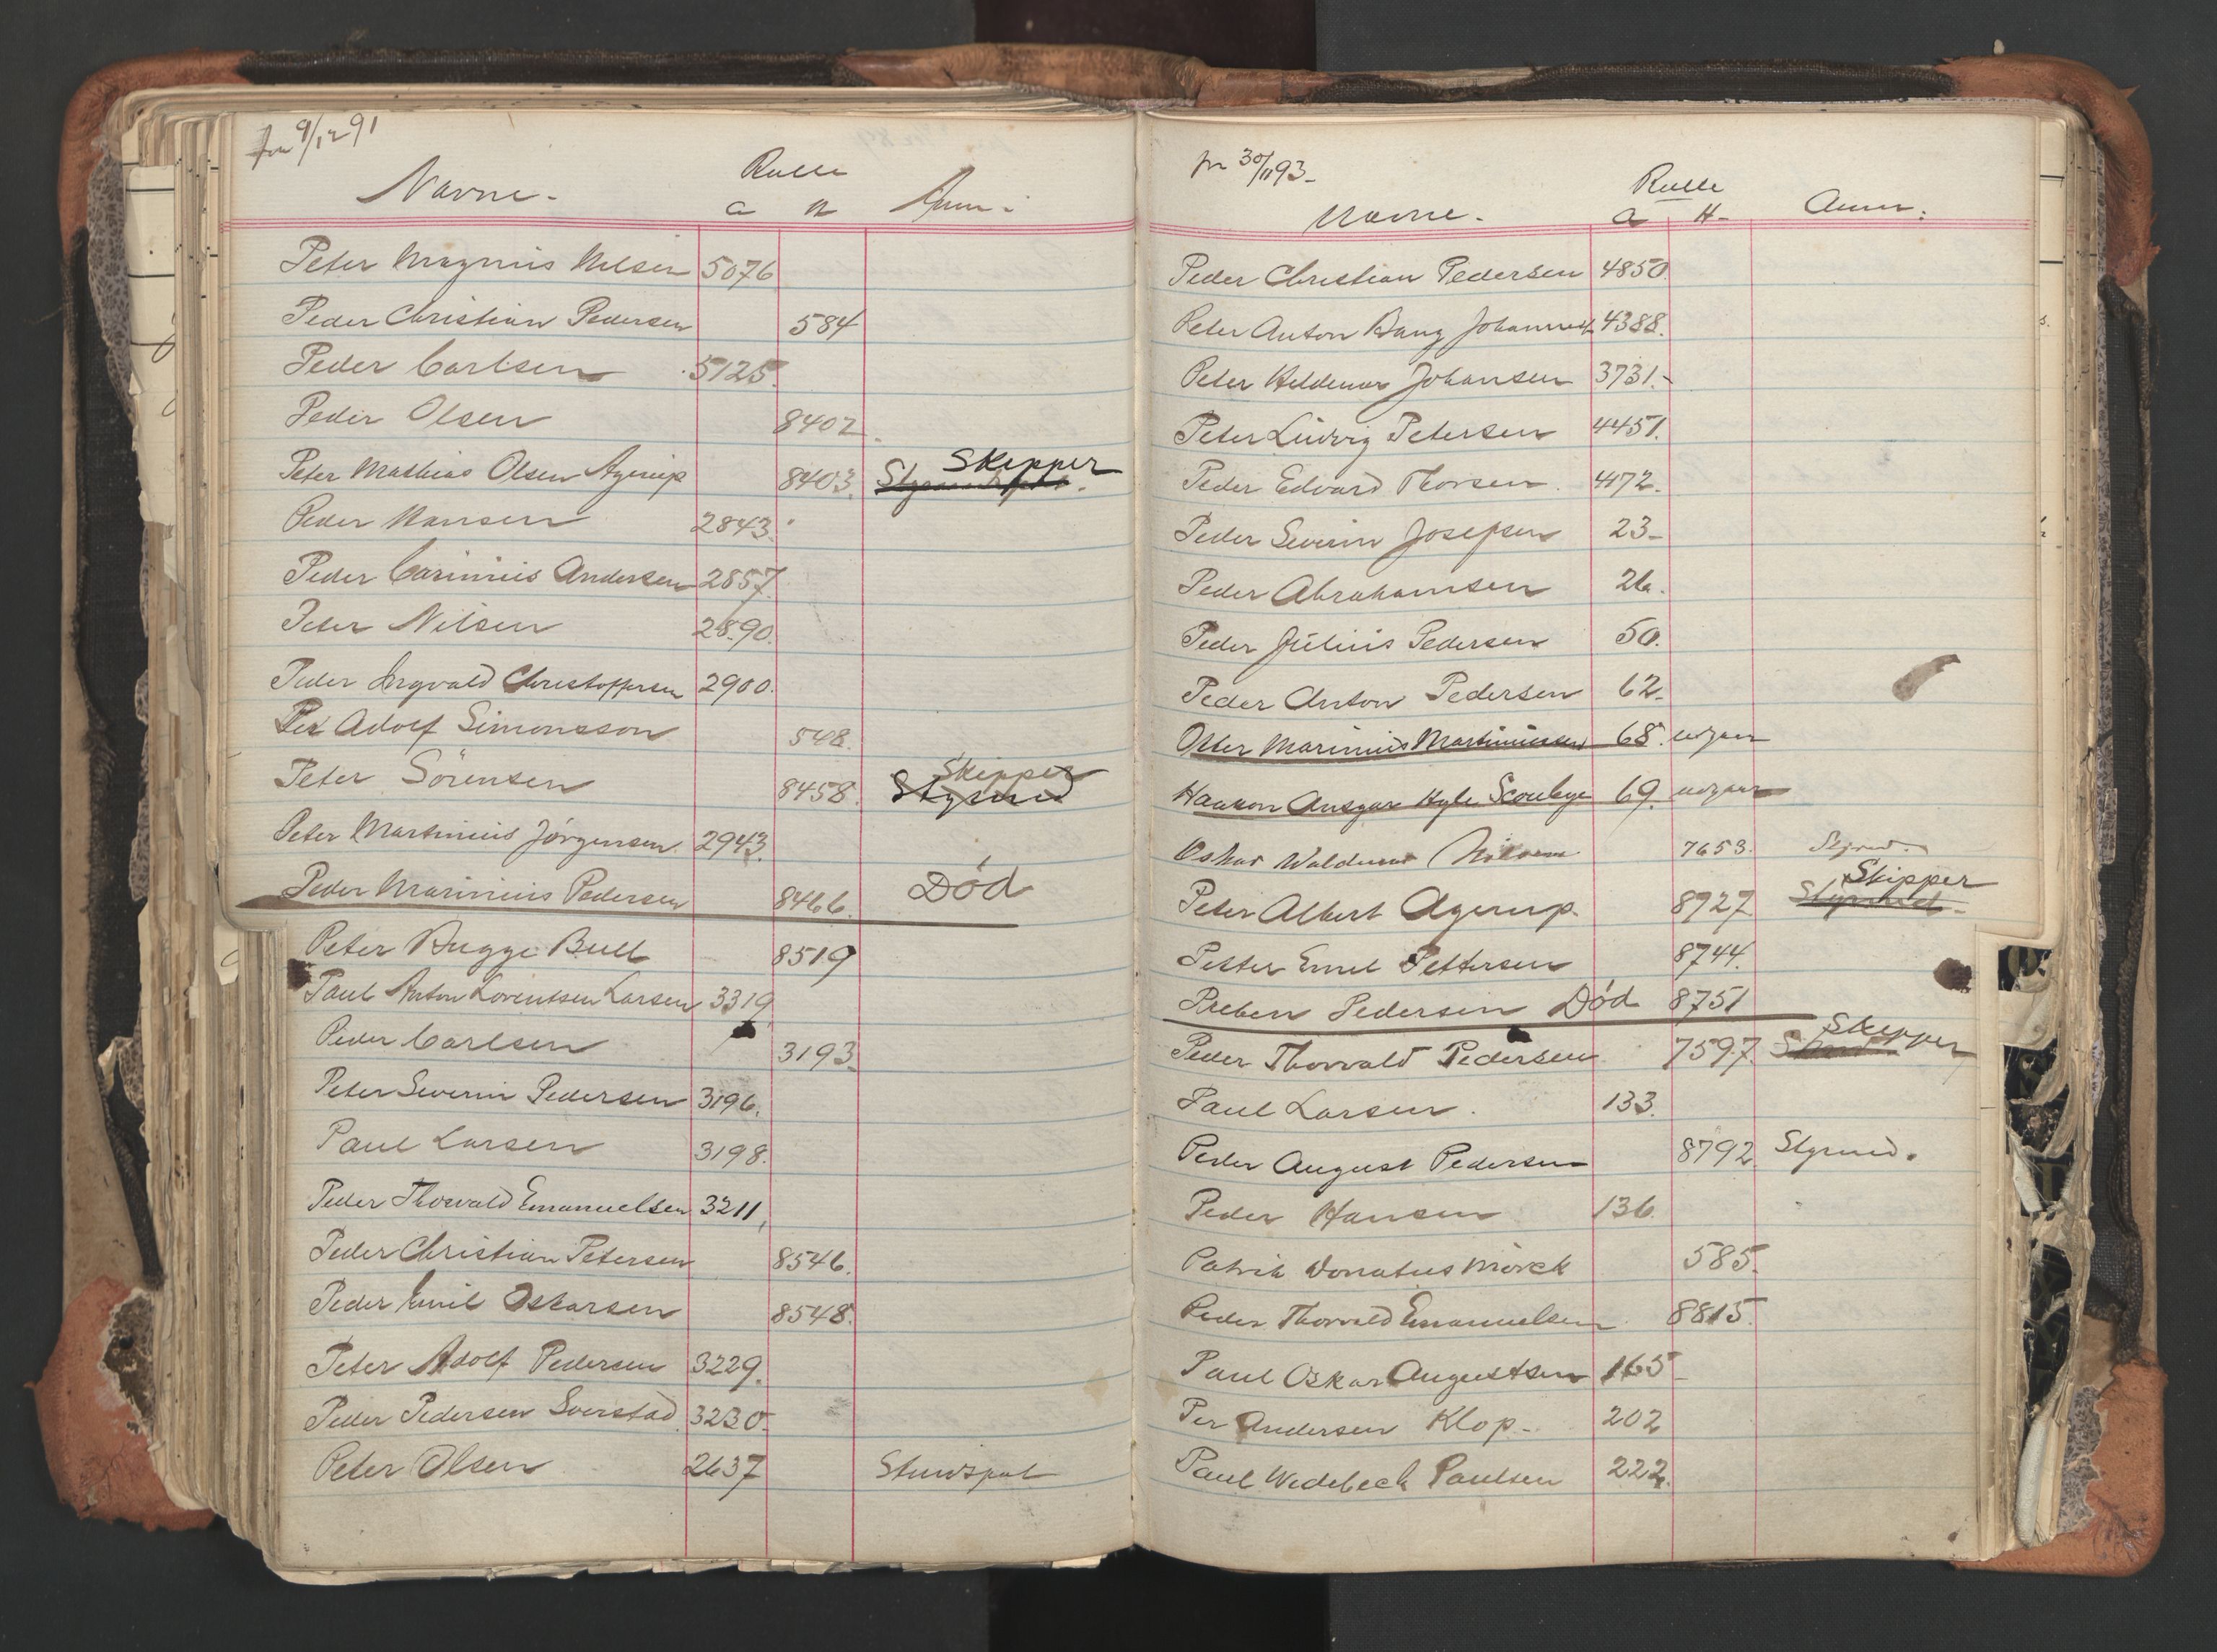 fra 9/12 91
Navne. Rulle Anm.
a H
Peter Magnus Nelsen 5076
Peder Christian Pedersen 584
Peder Carlsen 5125.
Peder Olsen 8402
Peter Mathias Olsen Agerup 8403. Skipper
Peder Hansen 2843.
Peder Carinius Andersen 2857.
Peter Nilsen 2890.
Peder Ingvald Christoffersen 2900.
Per Adolf Simonsson 548.
Peter Sörensen 8458. Styrmd Skipper
Peter Martinius Jörgensen. 2943.
Peder Marinius Pedersen 8466. Död
Peter Bugge Bull 8519
Paul Anton Lorentsen Larsen 3319
Peder Carlsen 3193.
Peter Severin Pedersen 3196.
Paul Larsen 3198.
Peder Thorvald Emanuelsen 3211,
Peder Christian Petersen 8546.
Peder Emil Oskarsen 8548.
Peter Adolf Pedersen 3229.
Peder Pedersen Sverstad 3230.
Peter Olsen 2637
fra 30/11 93.
Navne. Rulle Anm.
a H.
Peder Christian Pedersen 4850.
Peter Anton Bang Johannes 4388.
Peter Heldemar Johansen 3731.
Peter Ludvig Petersen 4451.
Peder Edvard Thorsen. 4172.
Peder Severin Josefsen 23.
Peder Abrahamsen 26.
Peder Julius Pedersen 50.
Peder Anton Pedersen 62.
Otter Marinius Martiniussen 68. udgaar
Haakon Ansgar Hyle Scouboye 69. udgaar
Oskar Waldemar Nilsen 7653. Styrmd.
Peter Albert Agerup. 8927 Styrmd. Skipper
Petter Emil Pettersen 8744.
Preben Pedersen Död 8751
Peder Thorvald Pedersen 7597. Skipper
Paul Larsen. 133.
Peder August Pedersen 8792. Styrmd.
Peder Hansen 136.
Patrik Donatus Mörck 585.
Peder Thorvald Emanuelsen. 8815.
Paul Oskar Augustsen 165
Per Andersen Klop. 202
Paul Wedebeck Paulsen 222.